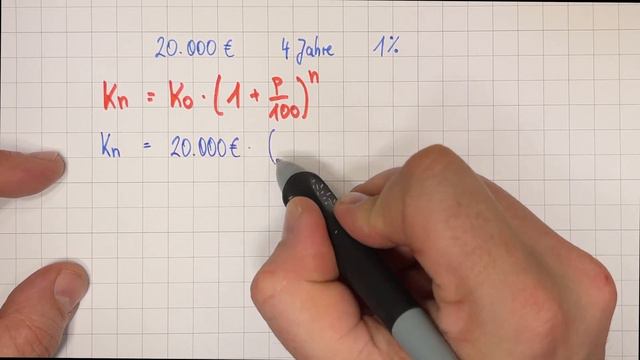 20.000 € 4 Jahre 1%
Kn = K0 · (1 + p/100)^n
Kn = 20.000 € · (